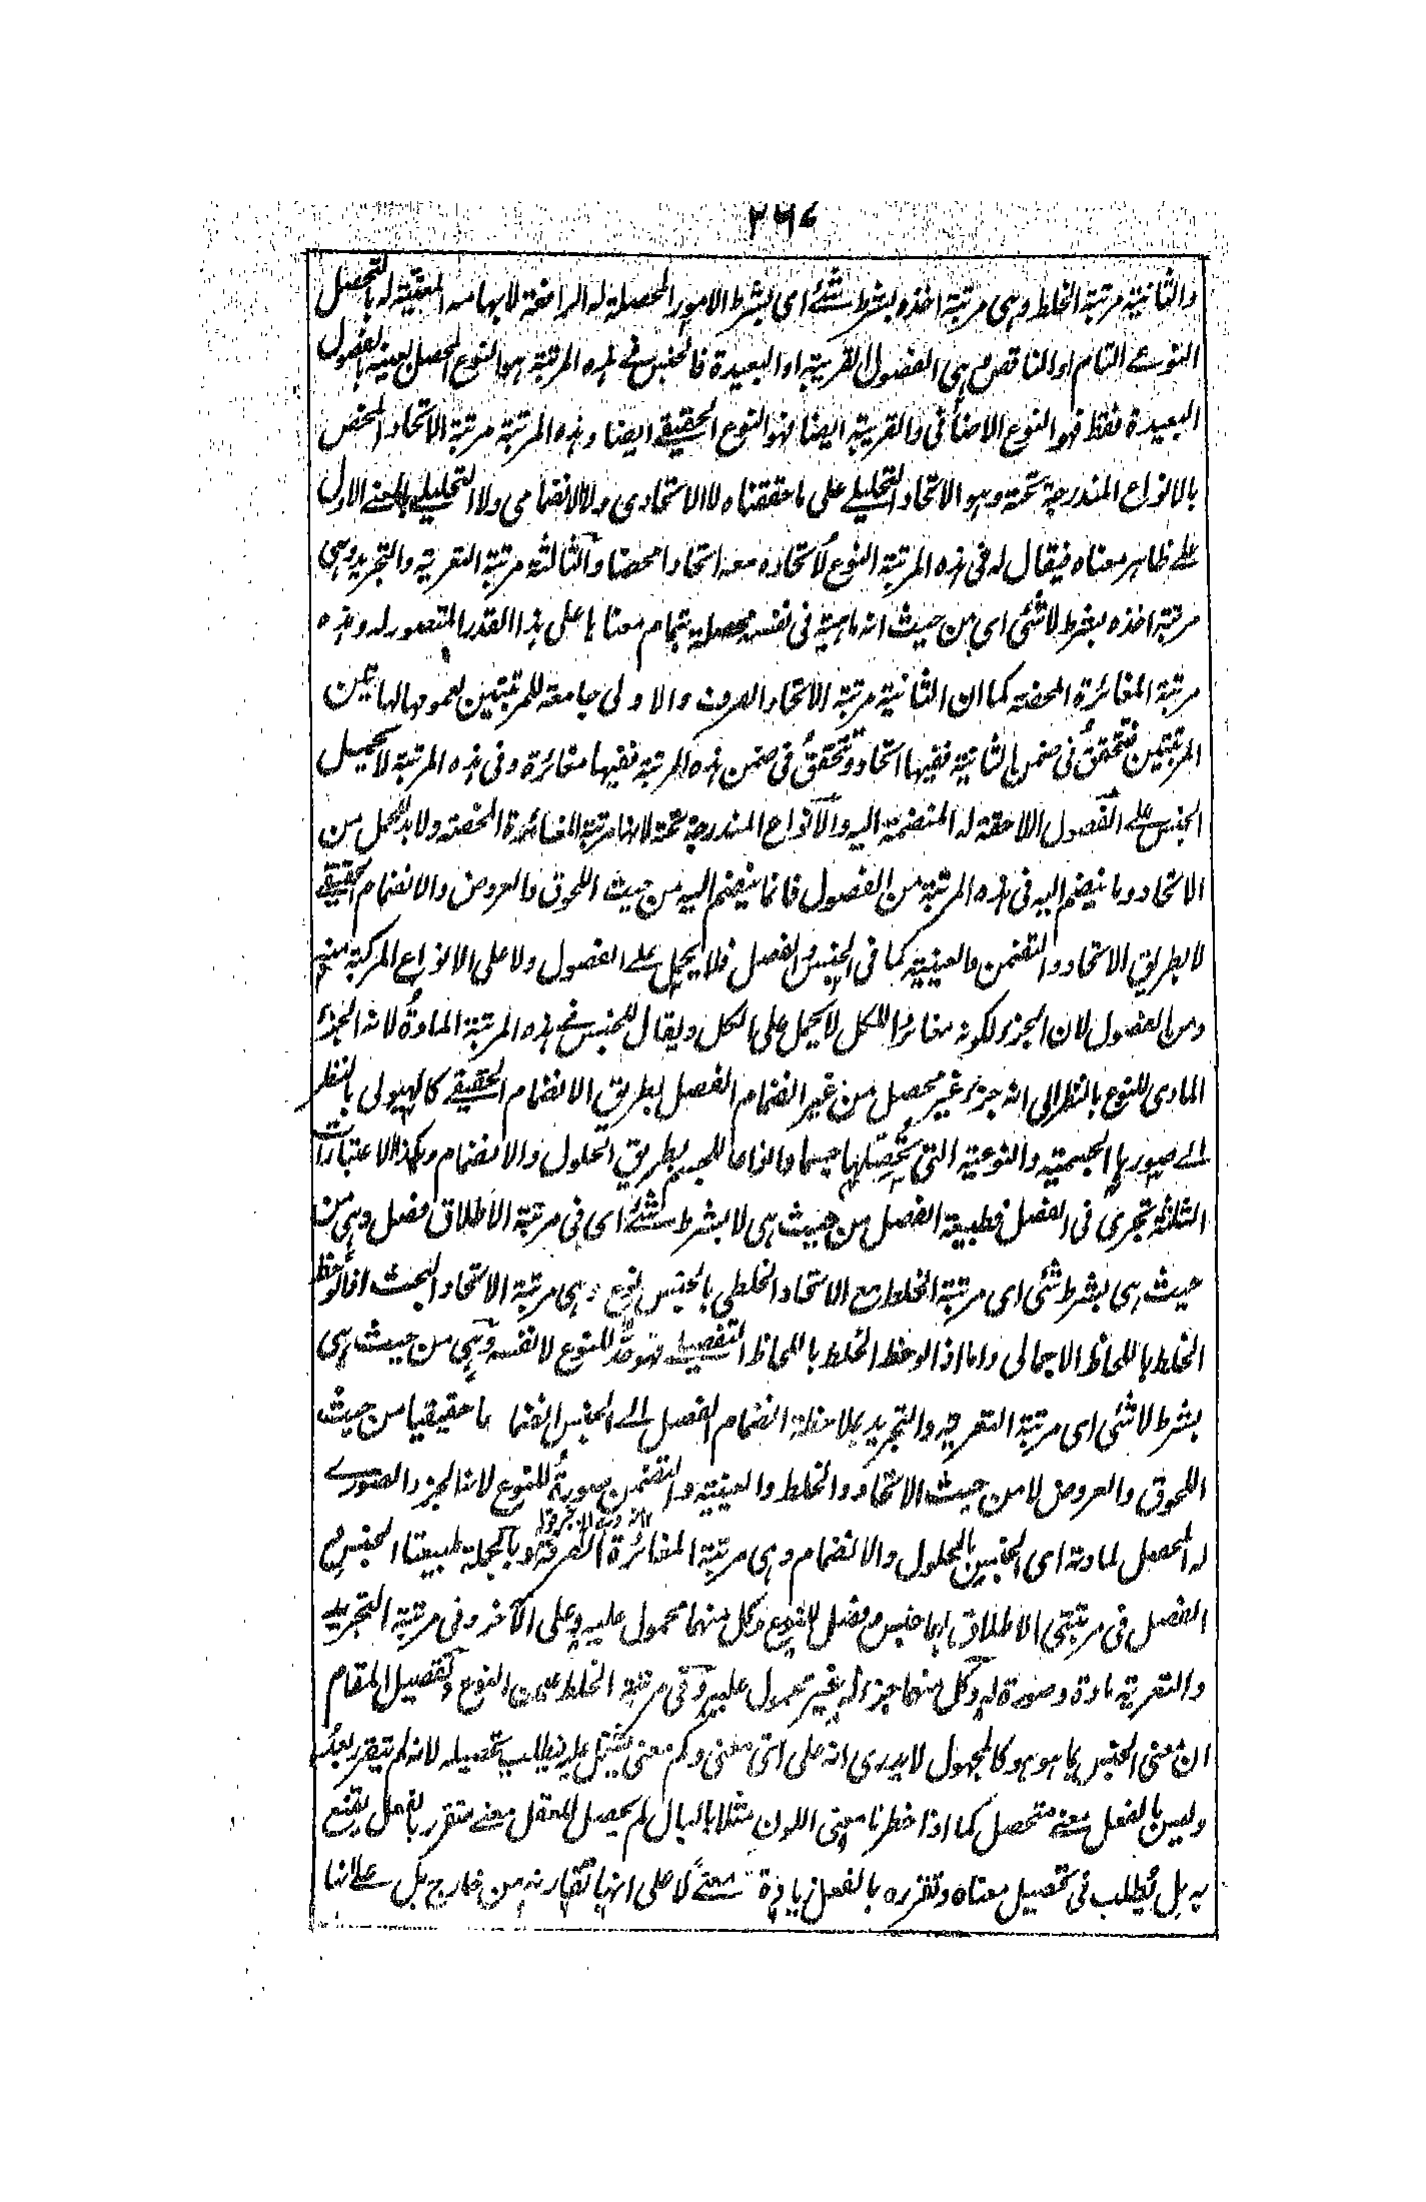 ۲۶۷
والثانية مرتبة الخلط وہی مرتبة اخذہ بشرط شئے ای بشرط الامور المحصلة له الرافعة لابہامه المعنية له بالتحصل
النوعے التام او الناقص وہی الفصول القريبة او البعيدة فالجنس فے ہذہ المرتبة ہو النوع المحصل بعينه بالفصول
البعيدة فقط فہو النوع الاضافی والقريبة ايضا فہو النوع الحقيقے ايضا وہذہ المرتبة مرتبة الاتحاد المحض
بالانواع المندرجة تحته وہو الاتحاد التحليلے علی ما حققناہ لا الاتحادی ولا الانضمامی ولا التحليلے بالمعنے الاول
علے ظاہر معناہ فيقال له فی ہذہ المرتبة النوع لاتحادہ معه اتحادا محضا والثالثة مرتبة التعرية والتجريد وہی
مرتبة اخذہ بشرط لا شئی ای من حيث انه ماہية فی نفسه محصلة بتمام معناہا علی ہذا القدر المتصور له وہذہ
مرتبة المغائرة المحضة كما ان الثانية مرتبة الاتحاد الصرف والاولی جامعة للمرتبتين لعمومها لهاتين
المرتبتين فتتحقق فی ضمن الثانية ففيها اتحاد وتتحقق فی ضمن ہذہ المرتبة ففيها مغائرة وفی ہذہ المرتبة لا يحمل
الجنس علے الفصول اللاحقة له المنضمة اليه والانواع المندرجة تحته لانها مرتبة المغائرة المحضة ولا بد للحمل من
الاتحاد وما ينضم اليه فی ہذہ المرتبة من الفصول فانما ينضم اليه من حيث اللحوق والعروض والانضمام الحقيقے
لا بطريق الاتحاد والتضمن والعينية كما فی الجنس والفصل فلا يحمل علے الفصول ولا علی الانواع المركبة منه
ومن الفصول لان الجزء لكونه مغائرا للكل لا يحمل علی الكل ويقال للجنس فے ہذہ المرتبة المادة لانه الجزء
المادی للنوع بالنظر الی انه جزء غير محصل من غير انضمام الفصل بطريق الانضمام الحقيقے كالہيولی بالنظر
الے صورہا الجسمية والنوعية التی تحصلها جسما وانواعا للجسم بطريق الحلول والانضمام وہكذا الاعتبارات
الثلثة تجری فی الفصل فطبيعة الفصل من حيث ہی لا بشرط شئے ای فی مرتبة الاطلاق فصل وہی من
حيث ہی بشرط شئی ای مرتبة الخلط مع الاتحاد الخلطی بالجنس نوع وہی مرتبة الاتحاد البحت اذا لوحظ
الخلط باللحاظ الاجمالی واما اذا لوحظ الخلط باللحاظ التفصيلے فہو حد للنوع لا نفسه وہی من حيث ہی
بشرط لا شئی ای مرتبة التعرية والتجريد بملاحظة انضمام الفصل الے الجنس انضماما حقيقيا من حيث
اللحوق والعروض لا من حيث الاتحاد والخلط والعينية والتضمن صورة للنوع لانها الجزء الصورے
له المحصل لمادته ای الجنس بالحلول والانضمام وہی مرتبة المغائرة الصرفة وبالجملة طبيعتا الجنس و
الفصل فی مرتبتی الاطلاق لہما جنس وفصل للنوع وكل منهما محمول عليه وعلی الآخر وفی مرتبة التجريد
والتعرية مادة وصورة له وكل منهما جزء له غير محمول عليه وفی مرتبة الخلط عين النوع وتفصيل المقام
ان معنی الجنس بما ہو ہو كالمجہول لا يدری انه علی ای معنی وكم معنی يشتمل عليه فيطلب تحصيله لانه لم يتقرر بعد
وليس بالفعل معنے متحصل كما اذا خطرنا معنی اللون مثلا بالبال لم يحصل للعقل معنے متقرر بالفعل يقنع
به بل يطلب فی تحصيل معناہ وتقررہ بالفعل زيادة معنے لا علی انها تقارنه من خارج بل علے انها